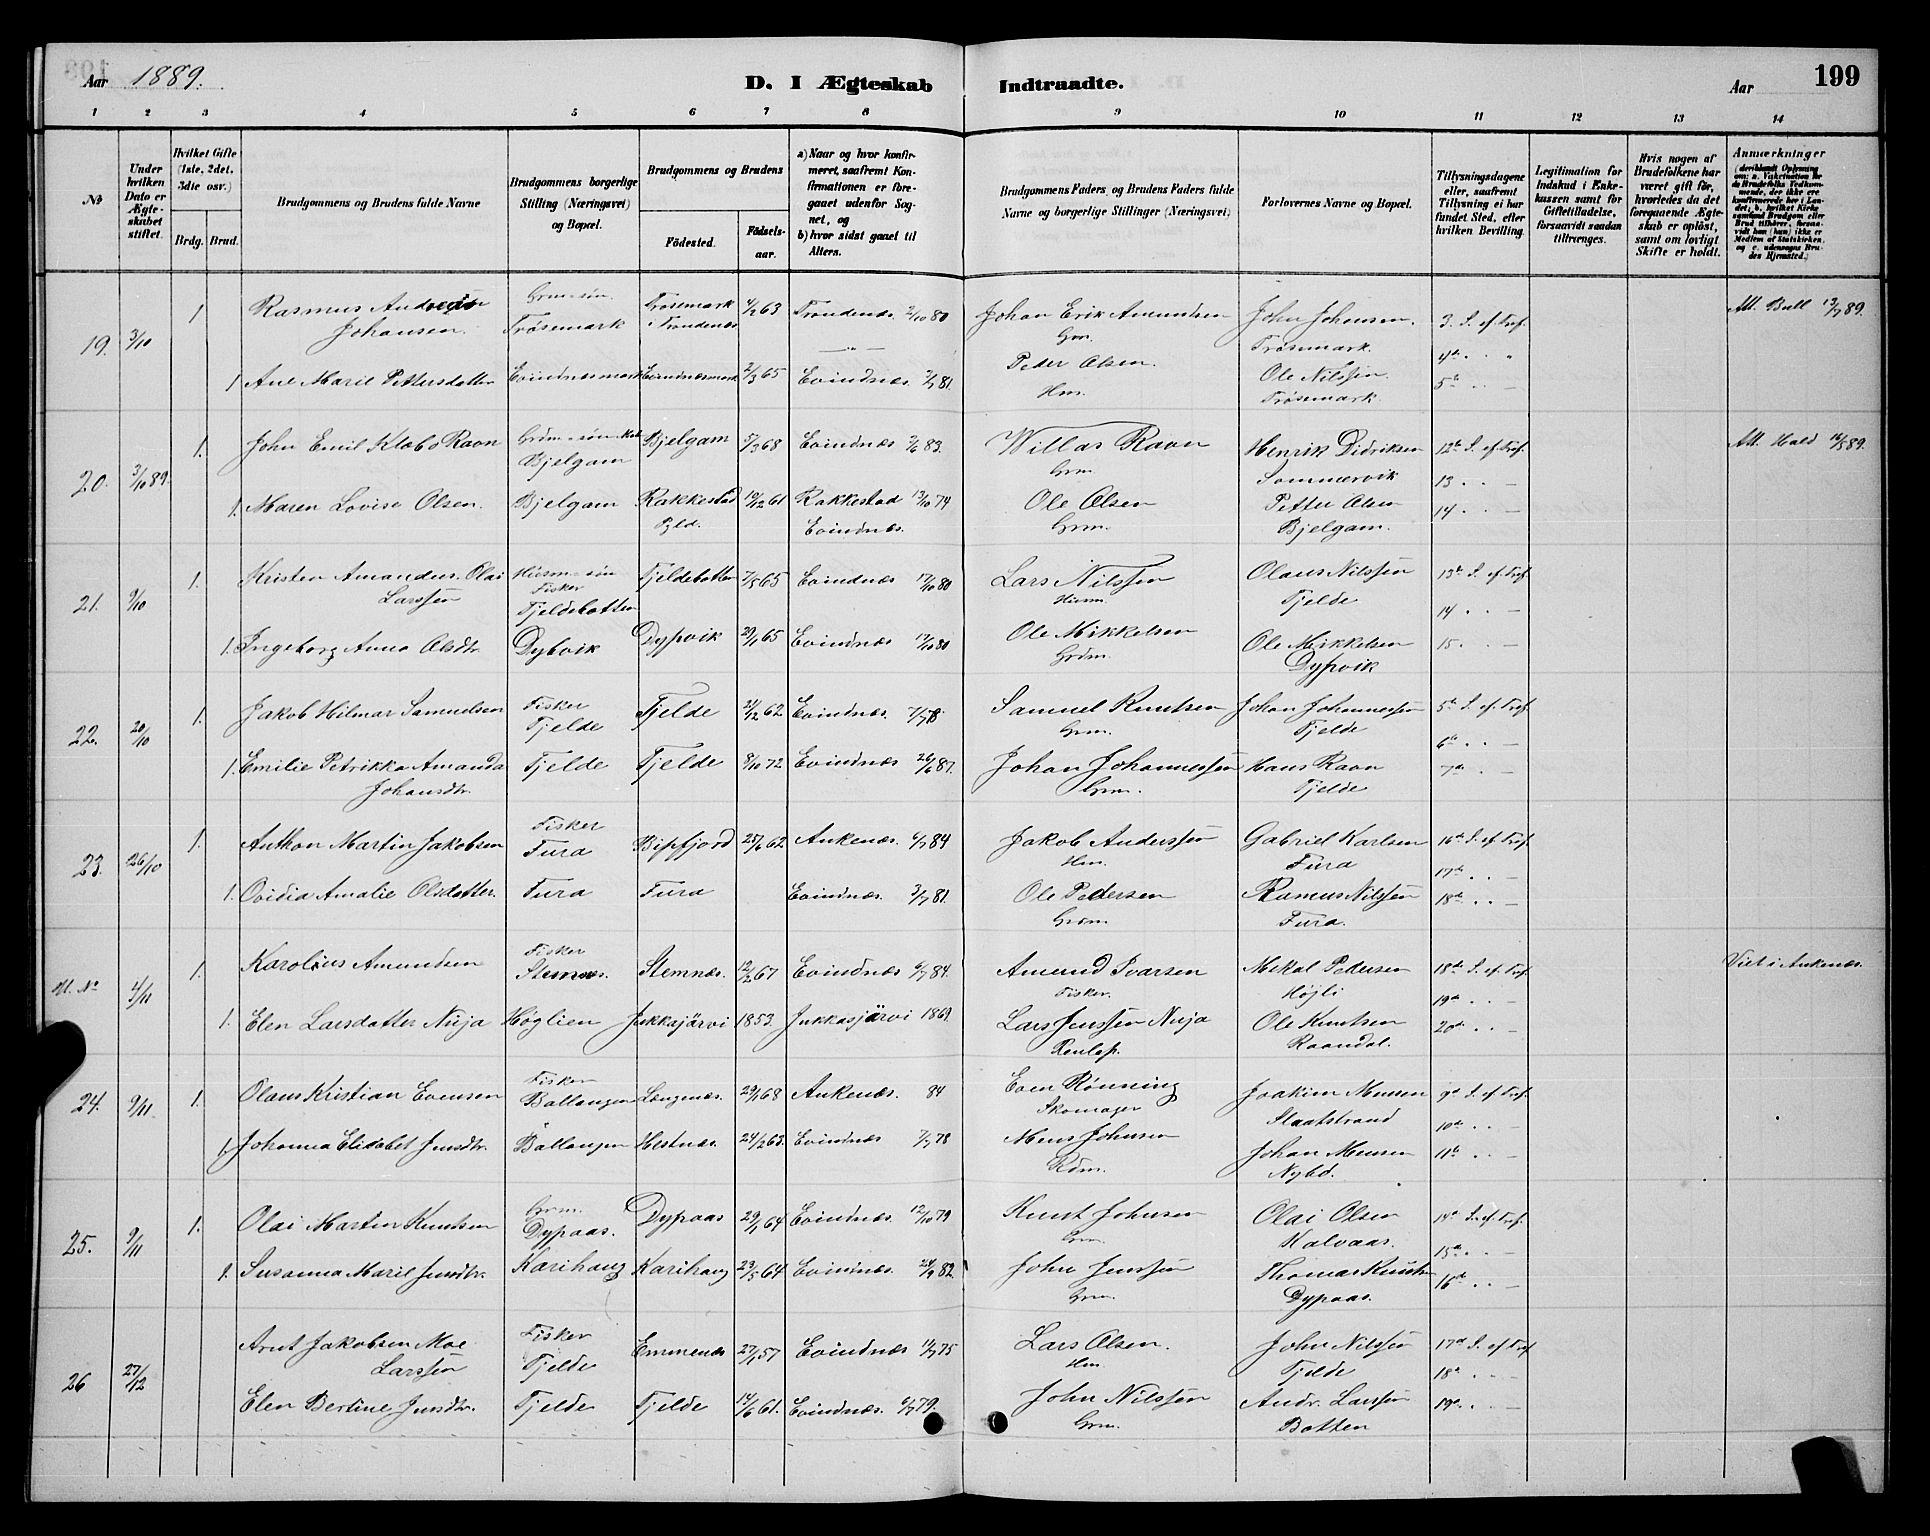 Aar 1889.
D. I Ægteskab Indtraadte.
Aar
199
1 2 3 4 5 6 7 8 9 10 11 12 13 14
№
Under hvilken Dato er Ægteskabet stiftet.
Hvilket Gifte (1ste, 2det, 3die osv.)
Brdg. Brud.
Brudgommens og Brudens fulde Navne
Brudgommens borgerlige Stilling (Næringsvei) og Bopæl.
Brudgommens og Brudens
Födested.
Födselsaar.
a) Naar og hvor konfirmeret, saafremt Konfirmationen er foregaaet udenfor Sognet, og
b) hvor sidst gaaet til Alters.
Brudgommens Faders og Brudens Faders fulde Navne og borgerlige Stillinger (Næringsvei)
Forlovernes Navne og Bopæl.
Tillysningsdagene eller, saafremt Tillysning ei har fundet Sted, efter hvilken Bevilling.
Legitimation for Indskud i Enkekassen samt for Giftetilladelse, forsaavidt saadan tiltrænges.
Hvis nogen af Brudefolkene har været gift før, hvorledes da det foregaaende Ægteskab er opløst, samt om lovligt Skifte er holdt.
Anmærkninger
19. 3/10 1 Rasmus Andreas Johansen Grm-søn. Trøsemark Trøsemark Trondenæs 4/2 63 Trondenæs 2/10 80 Johan Erik Amundsen Grm. John Johnsen. Trøsemark. 3. S. ef. Tref. Att. Bull 13/7 89.
1 Ane Marie Pettersdatter Evindnæsmark Evindnæsmark 2/3 65 Evindnæs 3/7 81. Peder Olsen Hm. Ole Nilssen. Trøsemark. 4de . . " 5te . . —
20. 3/10 89. 1. John Emil Klæbo Ravn Bjelgam Bjelgam 5/3 68 Evindnæs 2/6 83. Willas Ravn Grm. Henrik Didriksen Sommervik 12te S. ef. Tref. 13 . . — Att. Hald 16/8 89.
1. Maren Lovise Olsen. Bjelgam Rakkestad Pgld. 19/12 61 Rakkestad 13/10 74 Evindnæs. Ole Olsen Grm. Petter Olsen Bjelgam. 14 . . —
21. 9/10 1. Kristen Amandus Olai Larssen Husm-søn Fisker Fjeldebotten Fjeldebotten 7/5 65 Evindnæs 17/10 80 Lars Nilssen Husm. Olaus Nilssen Fjelde 13de S. ef. Tref. 14 . . —
1. Ingeborg Anna Olsdtr. Dybvik Dypvik 29/1 65 Evindnæs 17/10 80 Ole Mikkelsen Grdm. Ole Mikkelsen Dypvik 15 . . —
22. 20/10 1. Jakob Hilmar Samuelsen Fisker Fjelde Fjelde 21/12 62 Evindnæs. 7/7 78 Samuel Knutsen Grm. Johan Johannessen Fjelde 5te S. ef. Tref. 6te . . —
1. Emilie Petrikka Amanda Johansdtr. Fjelde Fjelde 8/10 72 Evindnæs 26/6 87. Johan Johannessen Grm. Hans Ravn Fjelde 7de . . —
23. 26/10 1. Anthon Martin Jakobsen Fisker Fura Bipfjord 25/6 62 Ankenæs. 6/7 84 Jakob Anderssen Hm. Gabriel Karlsen Fura 16de S. ef. Tref. 17de . . —
1. Ovidia Amalie Olsdatter. Fura Fura Evindnæs. 3/7 81. Ole Pedersen Grdm. Rasmus Nilssen Fura. 18de . . —
U. No 4/11 1. Karolius Amundsen Fisker Stemnæs. Stemnæs. 12/2 67 Evindnæs 6/7 84. Amund Ivarsen Fisker. Mikal Pedersen Højli 18de S. ef. Tref. 19de . . — Viet i Ankenæs.
1. Elen Larsdatter Nuja Høglien Jukkasjärvi 1853. Jukkasjärvi 1869. Lars Jenssen Nuja Renlap. Ole Knutsen Raandal. 20de . . —
24. 9/11 1. Olaus Kristian Evensen Fisker Ballangen Længenæs. 29/1 68 Ankenæs. 84 Even Rønning Skomager Joakim Monsen Slaatstrand 9de S. ef. Tref. 10de . . —
1. Johanna Elisabet Jensdtr. Ballangen Hestnæs. 24/2 63. Evindnæs 7/7 78 Mons Johnsen Rdm. Johan Monsen Nybd. 11te . . —
25. 9/11 1. Olai Martin Knutsen Grm. Dypaas. Dypaas 29/1 64 Evindnæs. 12/10 79 Knut Johnsen Grm. Olai Olsen Kalvaas. 14de S. ef. Tref. 15de . . —
1. Susanna Marie Jensdtr. Karihaug Karihaug 23/5 64 Evindnæs. 24/9 82. John Jenssen Grm. Thomas Knutsen Dypaas. 16de . . —
26 27/12 Arnt Jakobsen Moe Larssen Fisker Fjelde Emmenæs 27/1 57 Evindnæs 11/7 75 Lars Olsen. Hm. John Nilssen Fjelde 17de S. ef. Tref. 18de . . —
Elen Bertine Jensdtr. Fjelde Fjelde 14/6 61. Evindnæs. 6/7 79. John Nilssen Grm. Andr. Larssen Botten 19de . . —